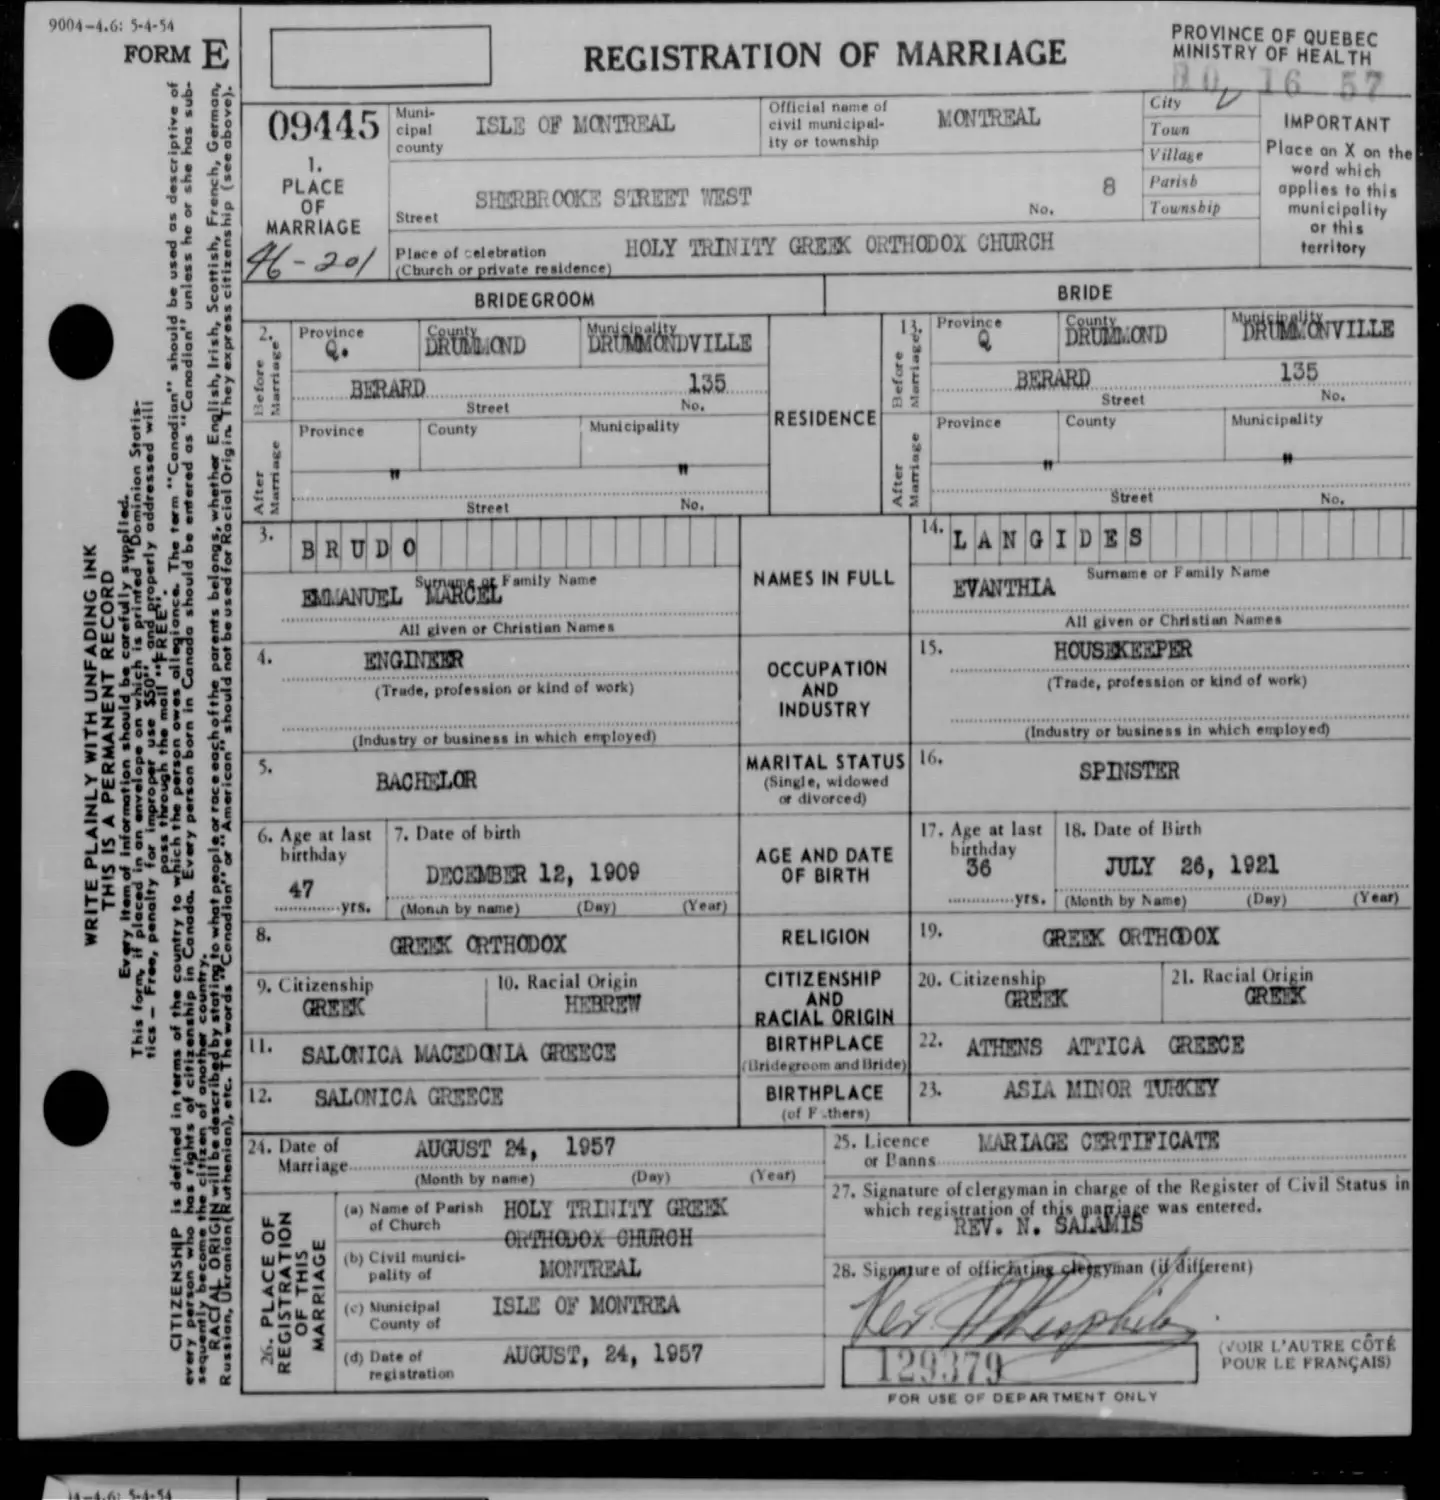 9004-4.6: 5-4-54
FORM E
REGISTRATION OF MARRIAGE
PROVINCE OF QUEBEC
MINISTRY OF HEALTH
16 57
09445
Municipal county
ISLE OF MONTREAL
Official name of civil municipality or township
MONTREAL
City
Town
Village
Parish
Township
IMPORTANT
Place an X on the
word which
applies to this
municipality
or this
territory
1.
PLACE
OF
MARRIAGE
46-201
Street
SHERBROOKE STREET WEST
No. 8
Place of celebration
(Church or private residence)
HOLY TRINITY GREEK ORTHODOX CHURCH
BRIDEGROOM
BRIDE
2. Before Marriage
Province Q.
County DRUMMOND
Municipality DRUMMONDVILLE
BERARD 135
Street No.
After Marriage
Province County Municipality
" "
Street No.
RESIDENCE
13. Before Marriage
Province Q
County DRUMMOND
Municipality DRUMMONVILLE
BERARD 135
Street No.
After Marriage
Province County Municipality
" "
Street No.
3. BRUDO
Surname or Family Name
EMMANUEL MARCEL
All given or Christian Names
NAMES IN FULL
14. LANGIDES
Surname or Family Name
EVANTHIA
All given or Christian Names
4. ENGINEER
(Trade, profession or kind of work)
(Industry or business in which employed)
OCCUPATION
AND
INDUSTRY
15. HOUSEKEEPER
(Trade, profession or kind of work)
(Industry or business in which employed)
5. BACHELOR
MARITAL STATUS
(Single, widowed
or divorced)
16. SPINSTER
6. Age at last
birthday
47 yrs.
7. Date of birth
DECEMBER 12, 1909
(Month by name) (Day) (Year)
AGE AND DATE
OF BIRTH
17. Age at last
birthday
36 yrs.
18. Date of Birth
JULY 26, 1921
(Month by Name) (Day) (Year)
8. GREEK ORTHODOX
RELIGION
19. GREEK ORTHODOX
9. Citizenship
GREEK
10. Racial Origin
HEBREW
CITIZENSHIP
AND
RACIAL ORIGIN
20. Citizenship
GREEK
21. Racial Origin
GREEK
11. SALONICA MACEDONIA GREECE
BIRTHPLACE
(Bridegroom and Bride)
22. ATHENS ATTICA GREECE
12. SALONICA GREECE
BIRTHPLACE
(of Fathers)
23. ASIA MINOR TURKEY
24. Date of
Marriage
AUGUST 24, 1957
(Month by name) (Day) (Year)
25. Licence
or Banns
MARIAGE CERTIFICATE
26. PLACE OF
REGISTRATION
OF THIS
MARRIAGE
(a) Name of Parish
of Church
HOLY TRINITY GREEK
ORTHODOX CHURCH
(b) Civil munici-
pality of
MONTREAL
(c) Municipal
County of
ISLE OF MONTREA
(d) Date of
registration
AUGUST, 24, 1957
27. Signature of clergyman in charge of the Register of Civil Status in
which registration of this marriage was entered.
REV. N. SALAMIS
28. Signature of officiating clergyman (if different)
Rev.
129379
FOR USE OF DEPARTMENT ONLY
(VOIR L'AUTRE CÔTÉ
POUR LE FRANÇAIS)
WRITE PLAINLY WITH UNFADING INK
THIS IS A PERMANENT RECORD
Every item of information should be carefully supplied.
This form, if placed in an envelope on which is printed "Dominion Statis-
tics — Free, penalty for improper use $50", and properly addressed will
pass through the mail "FREE".
CITIZENSHIP is defined in terms of the country to which the person owes allegiance. The term "Canadian" should be used as descriptive of
every person who has rights of citizenship in Canada. Every person born in Canada should be entered as "Canadian" unless he or she has sub-
sequently become the citizen of another country.
RACIAL ORIGIN will be described by stating to what people or race each of the parents belongs, whether English, Irish, Scottish, French, German,
Russian, Ukranian (Ruthenian), etc. The words "Canadian" or "American" should not be used for Racial Origin. They express citizenship (see above).
4-4.6: 5-4-54